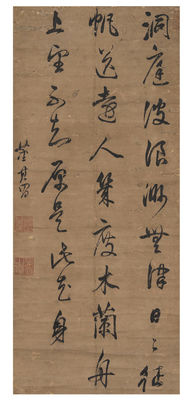 洞庭波浪渺無津日々征
帆送遠人幾度木蘭舟
上望不知原是此花身
董其昌